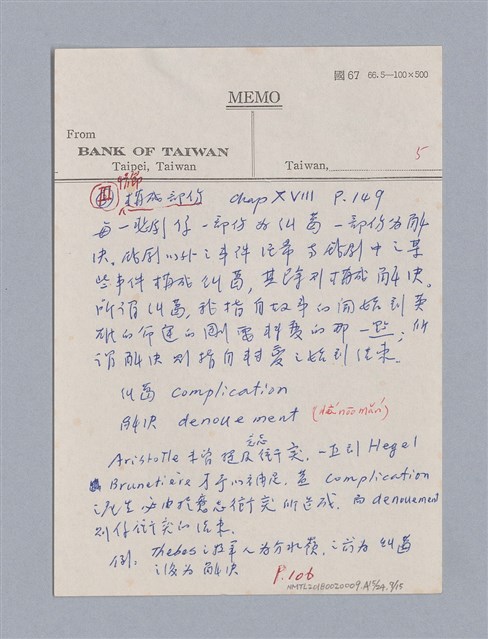 國67 66.5—100×500
MEMO
From
BANK OF TAIWAN
Taipei, Taiwan
Taiwan, 5
情節
構成部份 chap XVIII P.149
每一悲劇 一部份為糾葛 一部份為解
決。戲劇以外之事件經常與戲劇中之某
些事件構成糾葛，其餘則構成解決。
所謂糾葛，我指自故事的開始到英
雄的命運的剛要轉變的那一點；所
謂解決則指自轉變之始到結束。
糾葛 complication
解決 denouement (deˊnōōmäṅ)
意志
Aristotle 未曾提及衝突，一直到 Hegel
Brunetière 才予以補足，蓋 complication
之產生必由於意志衝突所造成，而 denouement
則係衝突的結束。
例： Thebes 之牧羊人為分水嶺，之前為糾葛
之後為解決
P.106
NMTL20180020009.A15/24,9/15